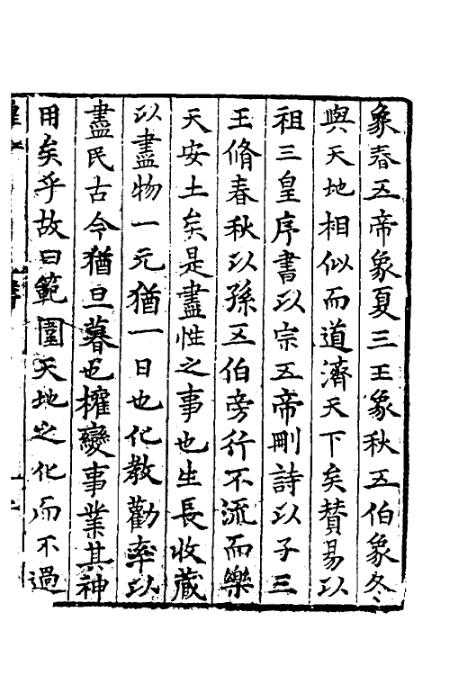 象春五帝象夏三王象秋五伯象冬
與天地相似而道濟天下矣賛易以
祖三皇序書以宗五帝刪詩以子三
王脩春秋以孫五伯旁行不流而樂
天安土矣是盡性之事也生長收蔵
以盡物一元猶一日也化教勸率以
盡民古今猶旦暮也權變事業其神
用矣乎故曰範圍天地之化而不過